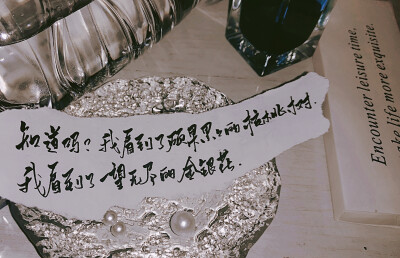 知道吗？我看到了硕果累累的核桃树.
我看到了望无尽的金银花.
Encounter leisure time,
ke life more exquisite.